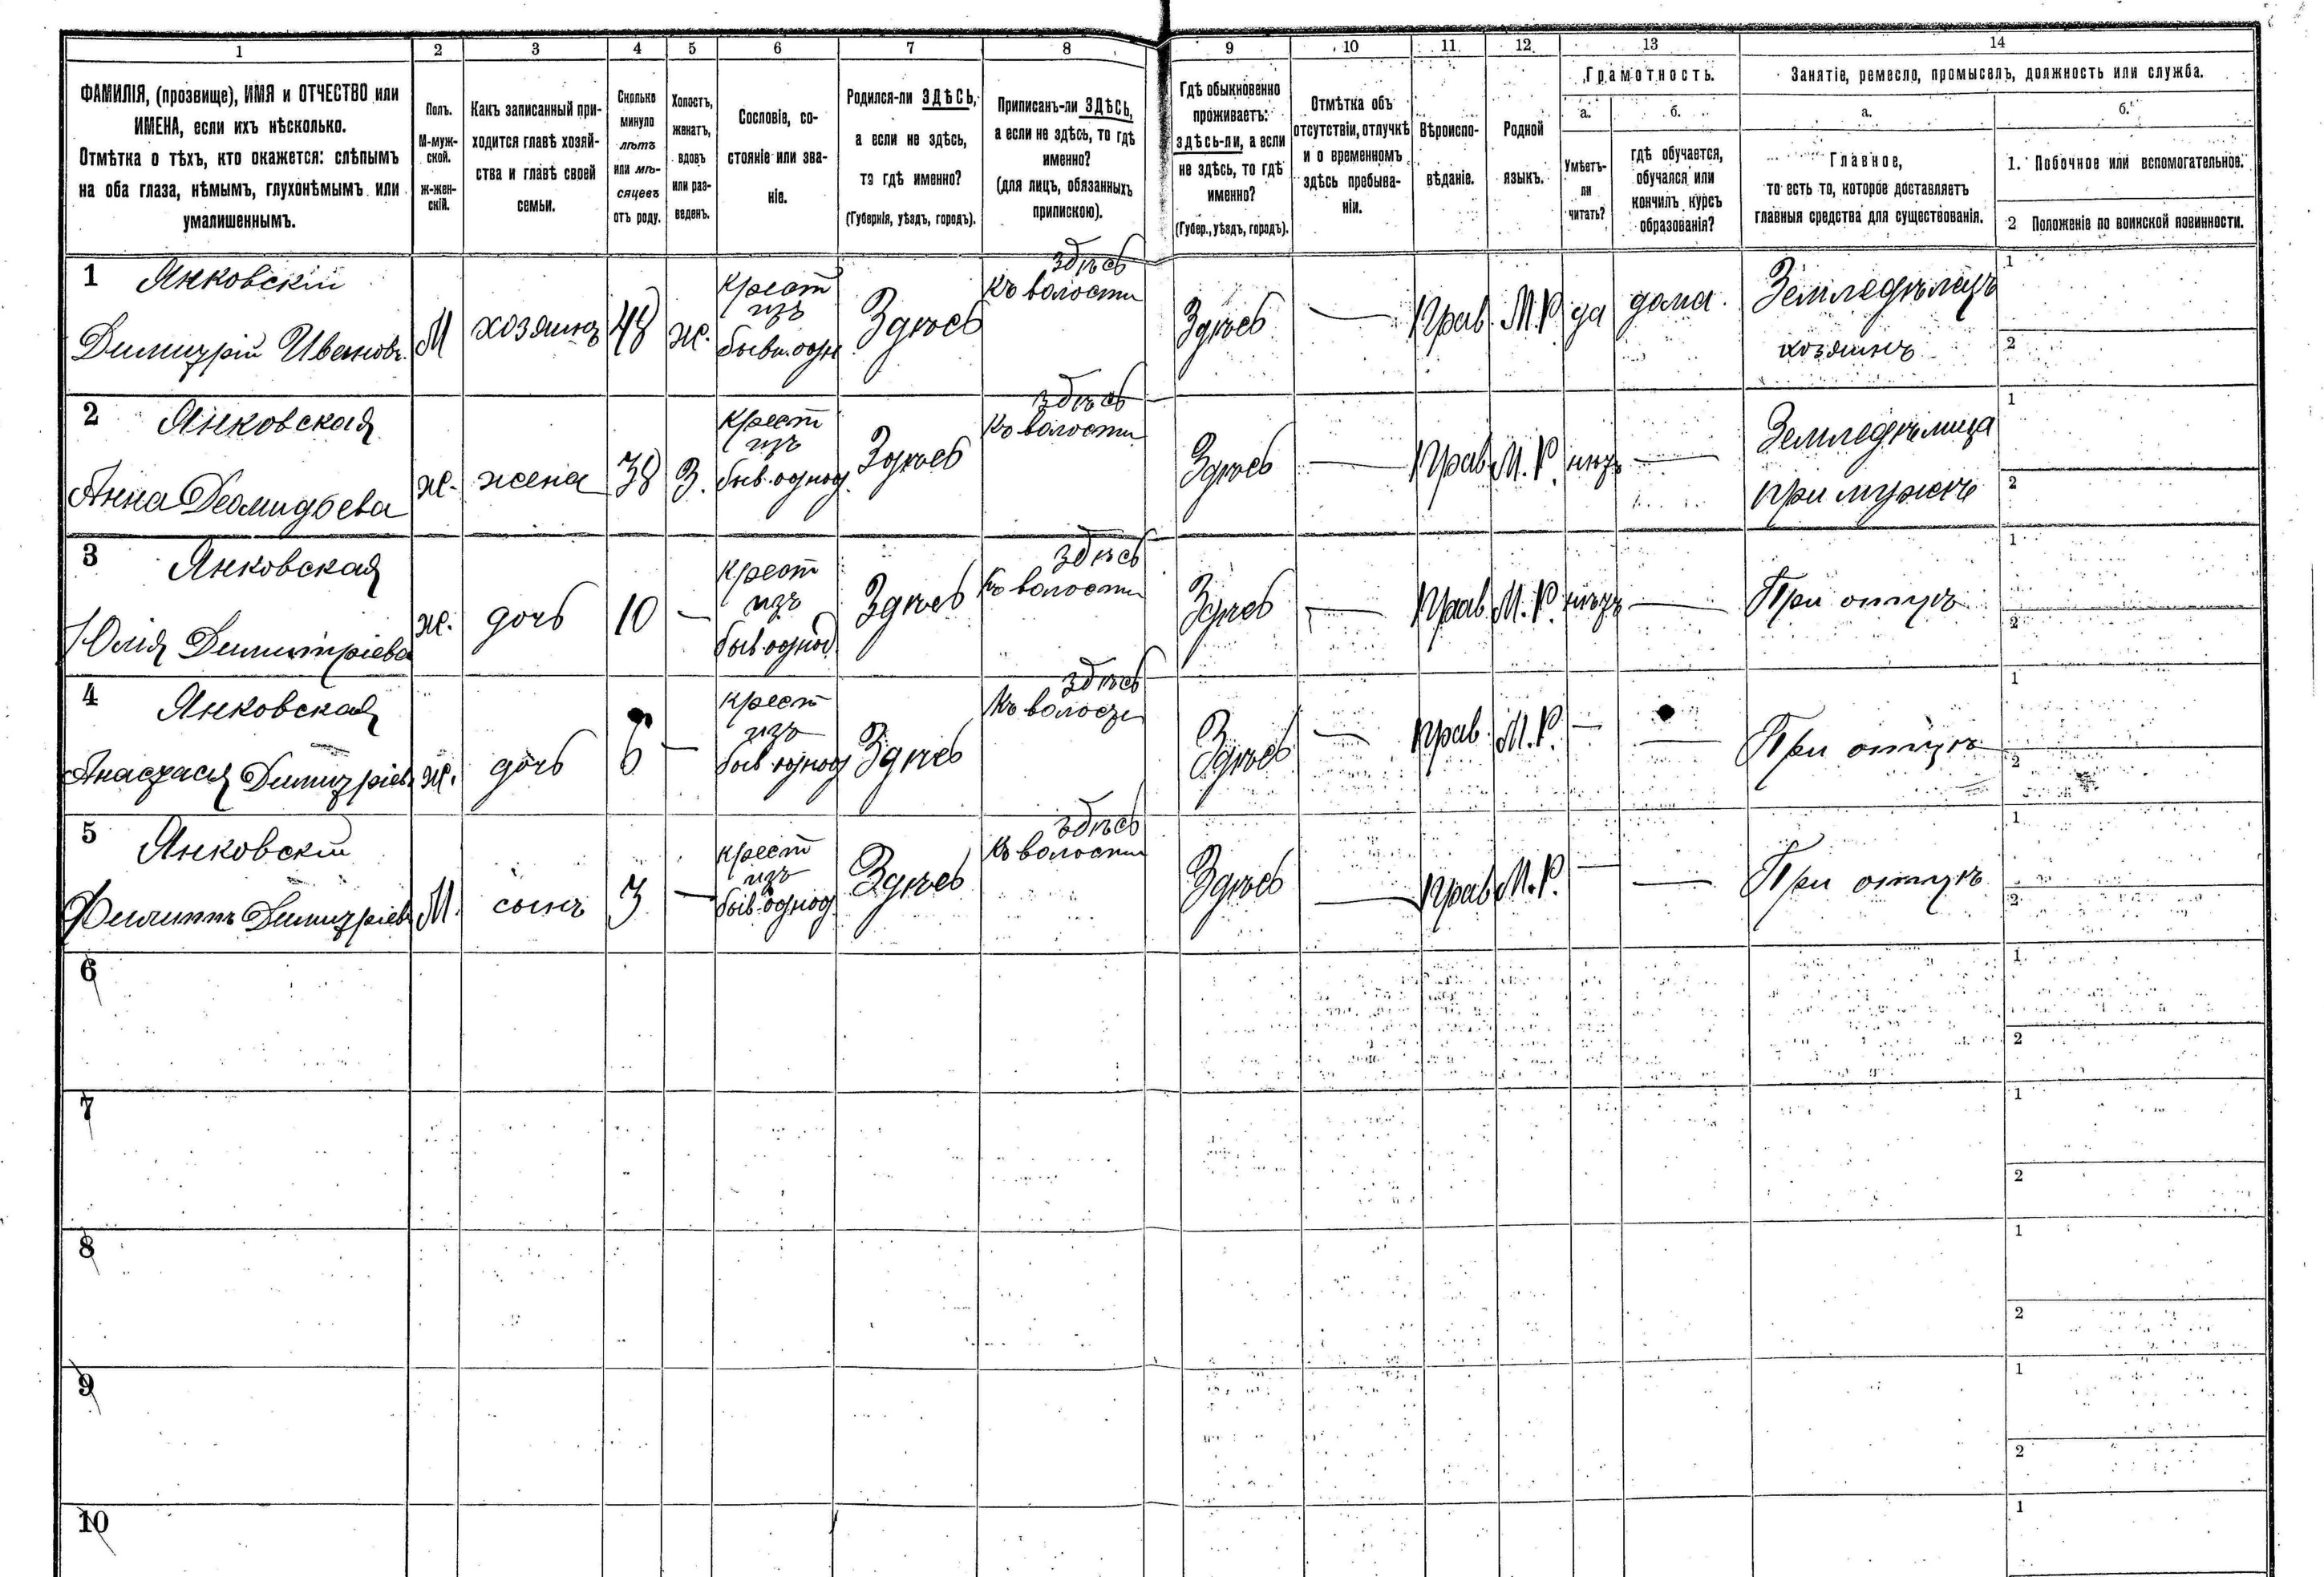 1 2 3 4 5 6 7 8 9 10 11 12 13 14
ФАМИЛІЯ, (прозвище), ИМЯ и ОТЧЕСТВО или
ИМЕНА, если ихъ нѣсколько.
Отмѣтка о тѣхъ, кто окажется: слѣпымъ
на оба глаза, нѣмымъ, глухонѣмымъ или
умалишеннымъ.
Полъ.
М-муж-
ской.
ж-жен-
скій.
Какъ записанный при-
ходится главѣ хозяй-
ства и главѣ своей
семьи.
Сколько
минуло
лѣтъ
или мѣ-
сяцевъ
отъ роду.
Холостъ,
женатъ,
вдовъ
или раз-
веденъ.
Сословіе, со-
стояніе или зва-
ніе.
Родился-ли ЗДѢСЬ,
а если не здѣсь,
то гдѣ именно?
(Губернія, уѣздъ, городъ).
Приписанъ-ли ЗДѢСЬ,
а если не здѣсь, то гдѣ
именно?
(для лицъ, обязанныхъ
припискою).
Гдѣ обыкновенно
проживаетъ:
здѣсь-ли, а если
не здѣсь, то гдѣ
именно?
(Губер., уѣздъ, городъ).
Отмѣтка объ
отсутствіи, отлучкѣ
и о временномъ
здѣсь пребыва-
ніи.
Вѣроиспо-
вѣданіе.
Родной
языкъ.
Грамотность.
а.
Умѣетъ-
ли
читать?
б.
гдѣ обучается,
обучался или
кончилъ курсъ
образованія?
Занятіе, ремесло, промыселъ, должность или служба.
а.
Главное,
то есть то, которое доставляетъ
главныя средства для существованія.
б.
1. Побочное или вспомогательное.
2 Положеніе по воинской повинности.
1 Янковскій
Димитрій Ивановъ
М
хозяинъ
48
ж.
Крест
изъ
бывш. одн
Здѣсь
здѣсь
Къ волости
Здѣсь
—
Прав.
М.Р.
да
дома.
Земледѣлецъ
хозяинъ
1
2
2 Янковская
Анна Демидьева
ж.
жена
38
З.
Крест
изъ
быв. однод.
Здѣсь
здѣсь
Къ волости
Здѣсь
—
Прав.
М.Р.
нѣтъ
—
Земледѣлица
при мужѣ
1
2
3 Янковская
Юлія Димитріева
ж.
дочь
10
—
Крест
изъ
быв. однод
Здѣсь
здѣсь
Къ волости
Здѣсь
—
Прав.
М.Р.
нѣтъ
—
При отцѣ
1
2
4 Янковская
Анастасія Димитріев
ж.
дочь
6
—
Крест
изъ
быв однод
Здѣсь
здѣсь
Къ волости
Здѣсь
—
Прав.
М.Р.
—
—
При отцѣ
1
2
5 Янковскій
Филиппъ Димитріев
М.
сынъ
3
—
Крест
изъ
быв. однод
Здѣсь
здѣсь
Къ волости
Здѣсь
—
Прав
М.Р.
—
—
При отцѣ
1
2
6
1
2
7
1
2
8
1
2
9
1
2
10
1